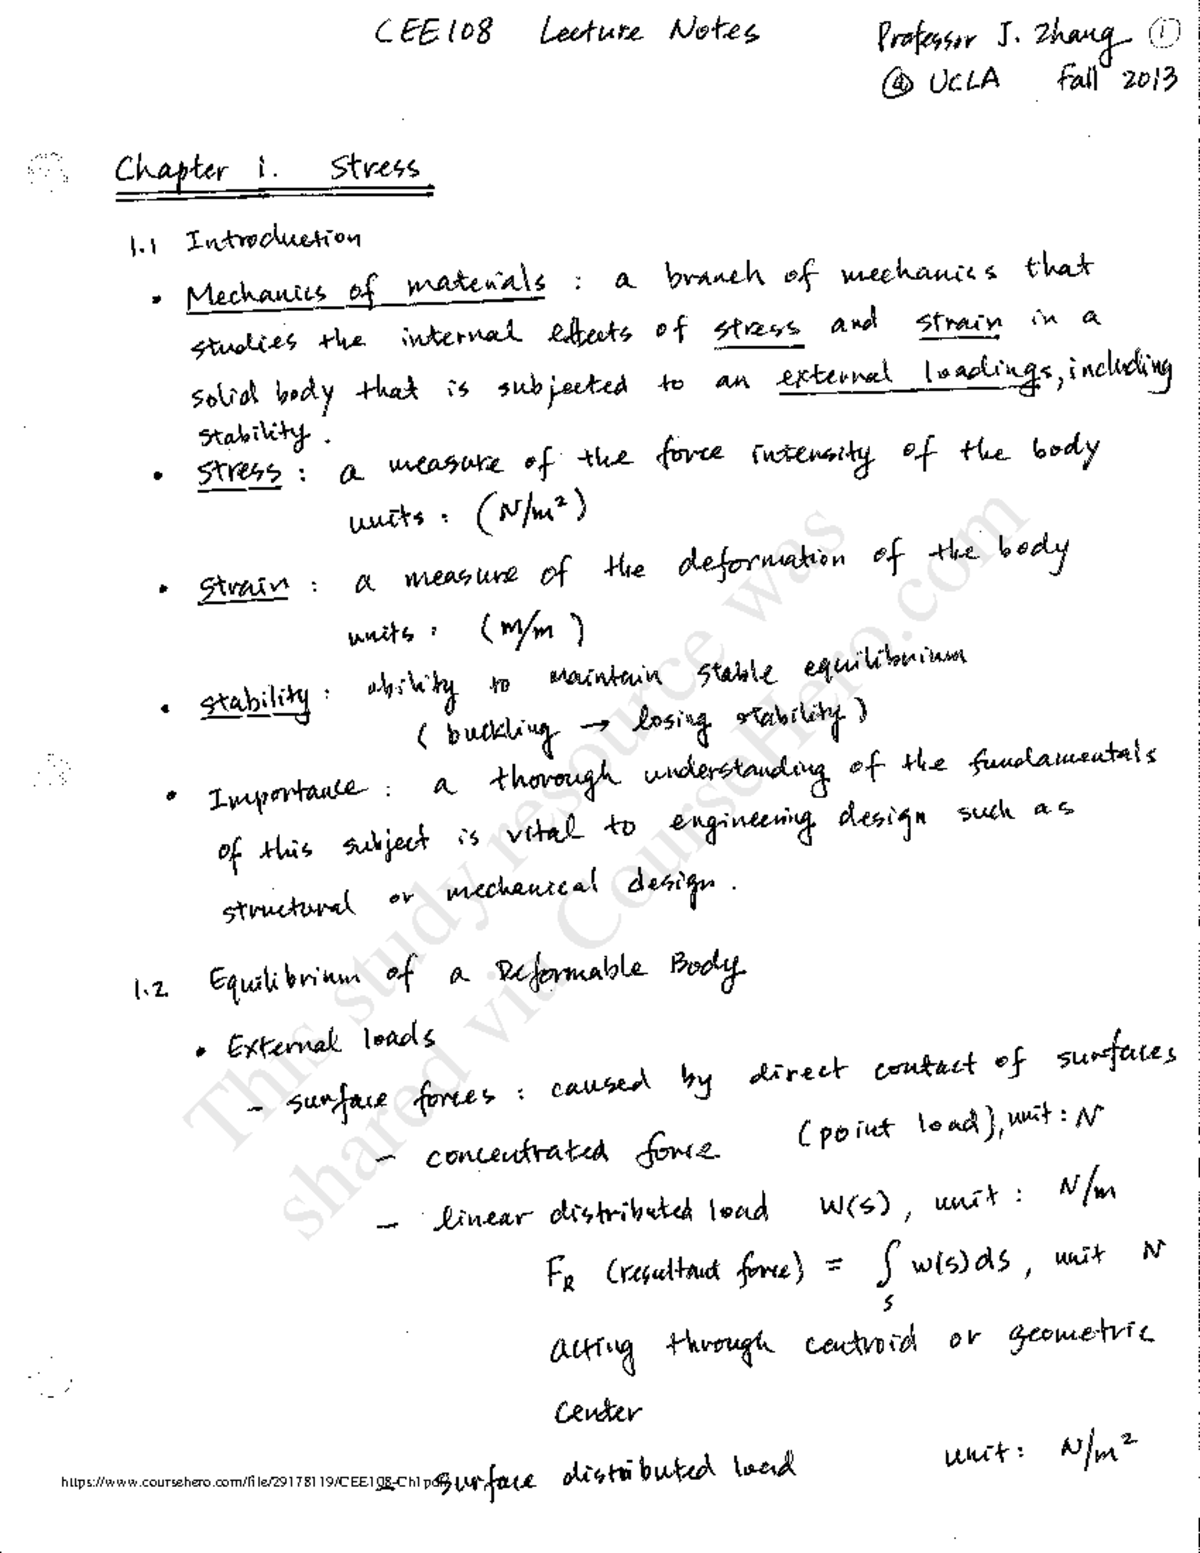 CEE108 Lecture Notes
Professor J. Zhang ①
@ UCLA Fall 2013
Chapter 1. Stress
1.1 Introduction
• Mechanics of materials : a branch of mechanics that
studies the internal effects of stress and strain in a
solid body that is subjected to an external loadings, including
stability.
• stress : a measure of the force intensity of the body
units : (N/m²)
• strain : a measure of the deformation of the body
units : (m/m)
• stability : ability to maintain stable equilibrium
(buckling → losing stability)
• Importance : a thorough understanding of the fundamentals
of this subject is vital to engineering design such as
structural or mechanical design.
1.2 Equilibrium of a Deformable Body
• External loads
- surface forces : caused by direct contact of surfaces
- concentrated force (point load), unit : N
- linear distributed load w(s), unit : N/m
F_R (resultant force) = ∫_s w(s)ds, unit N
acting through centroid or geometric
center
- surface distributed load unit : N/m²
This study resource was
shared via CourseHero.com
https://www.coursehero.com/file/29178119/CEE108-Ch1pdf/